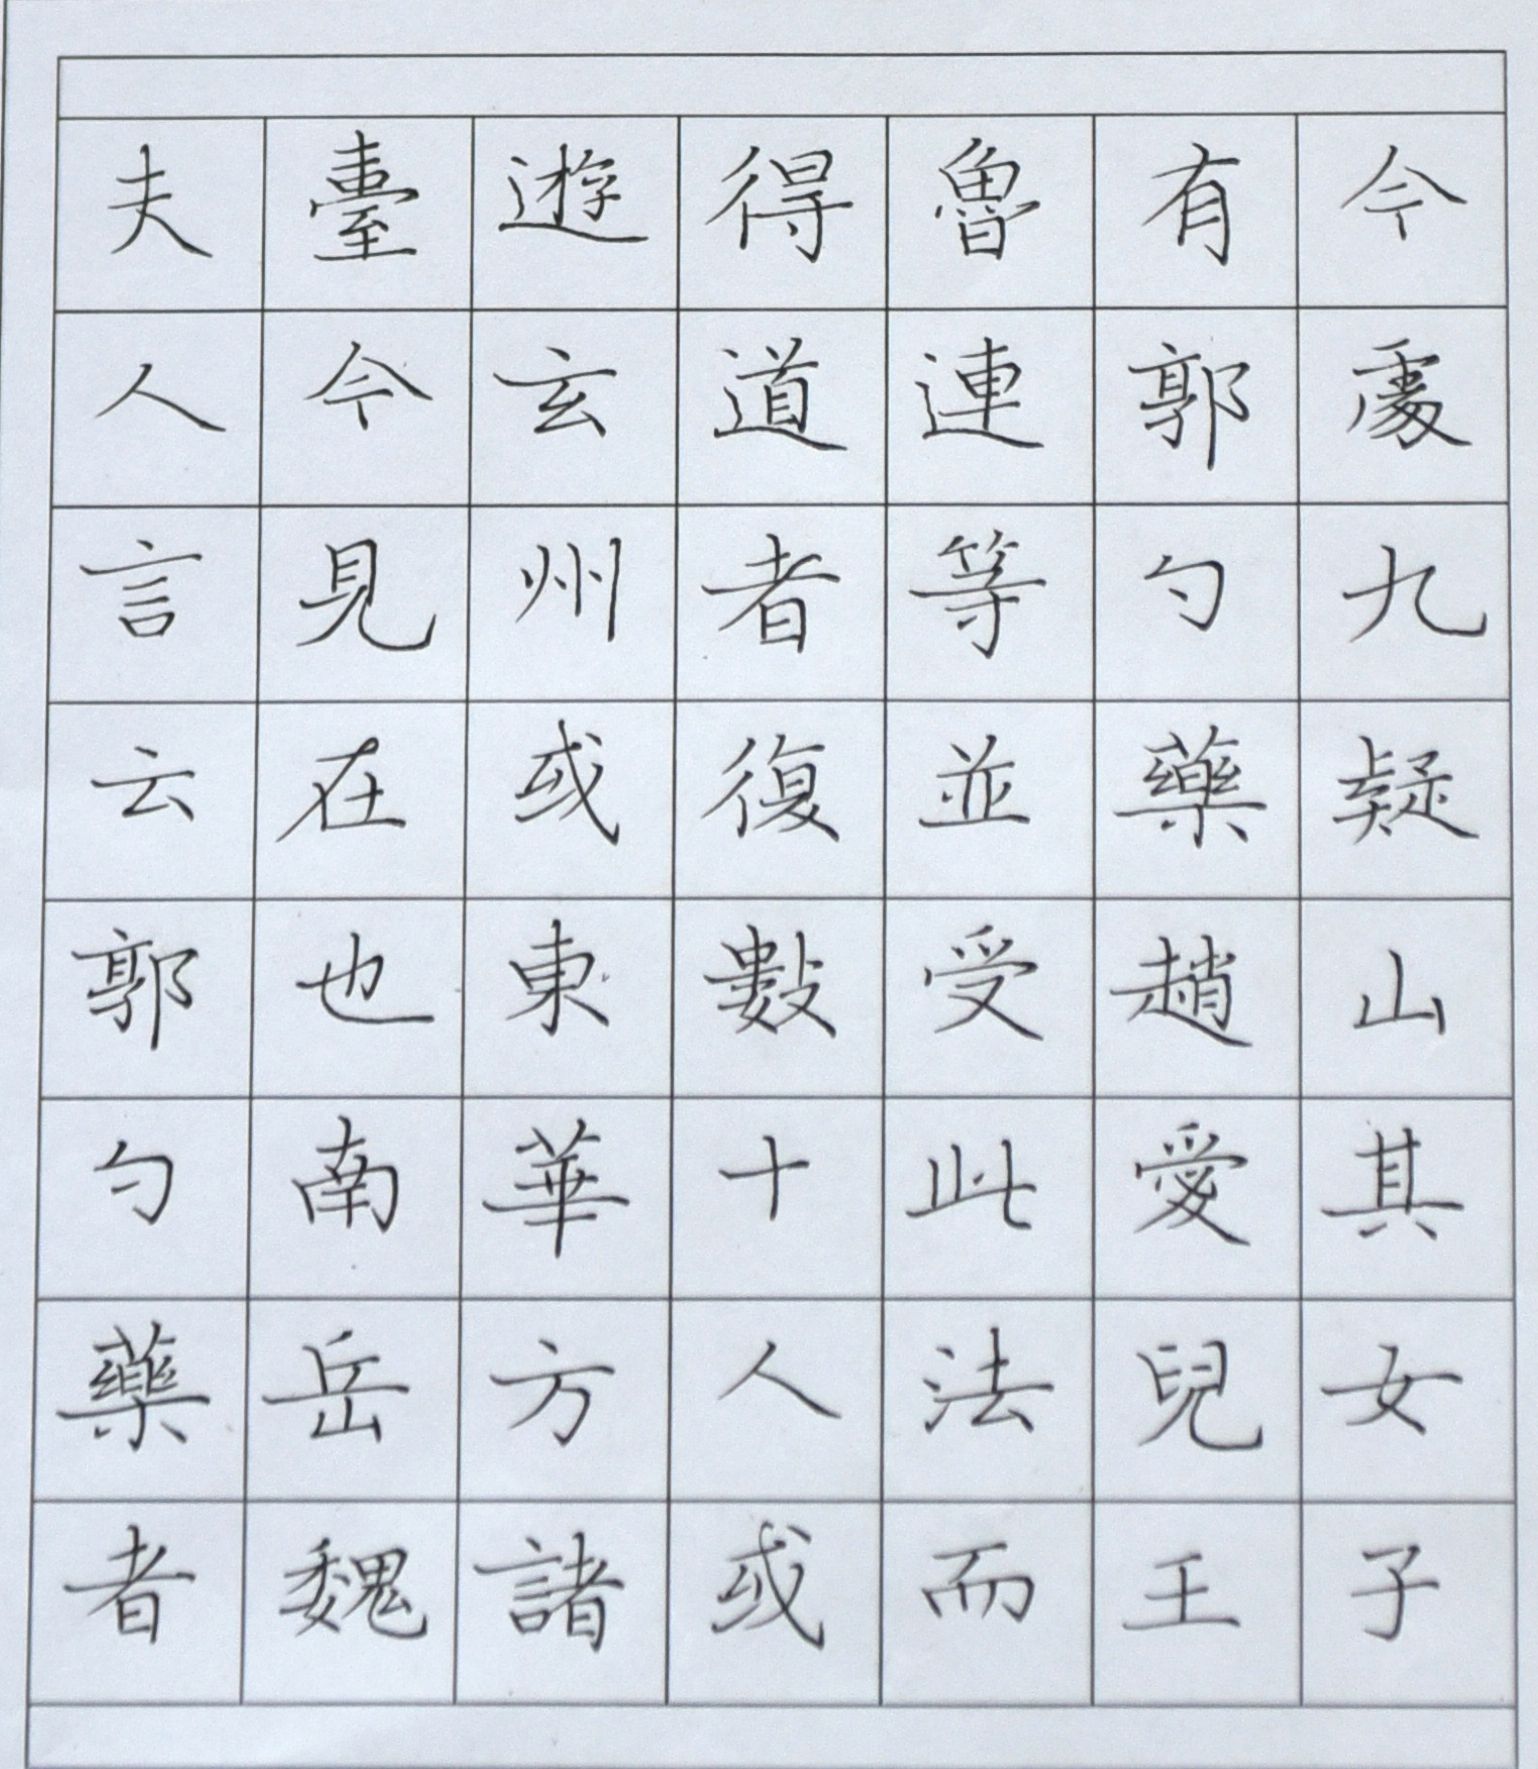 今處九疑山其女子
有郭勺藥趙愛兒王
魯連等並受此法而
得道者復數十人或
遊玄州或東華方諸
臺今見在也南岳魏
夫人言云郭勺藥者